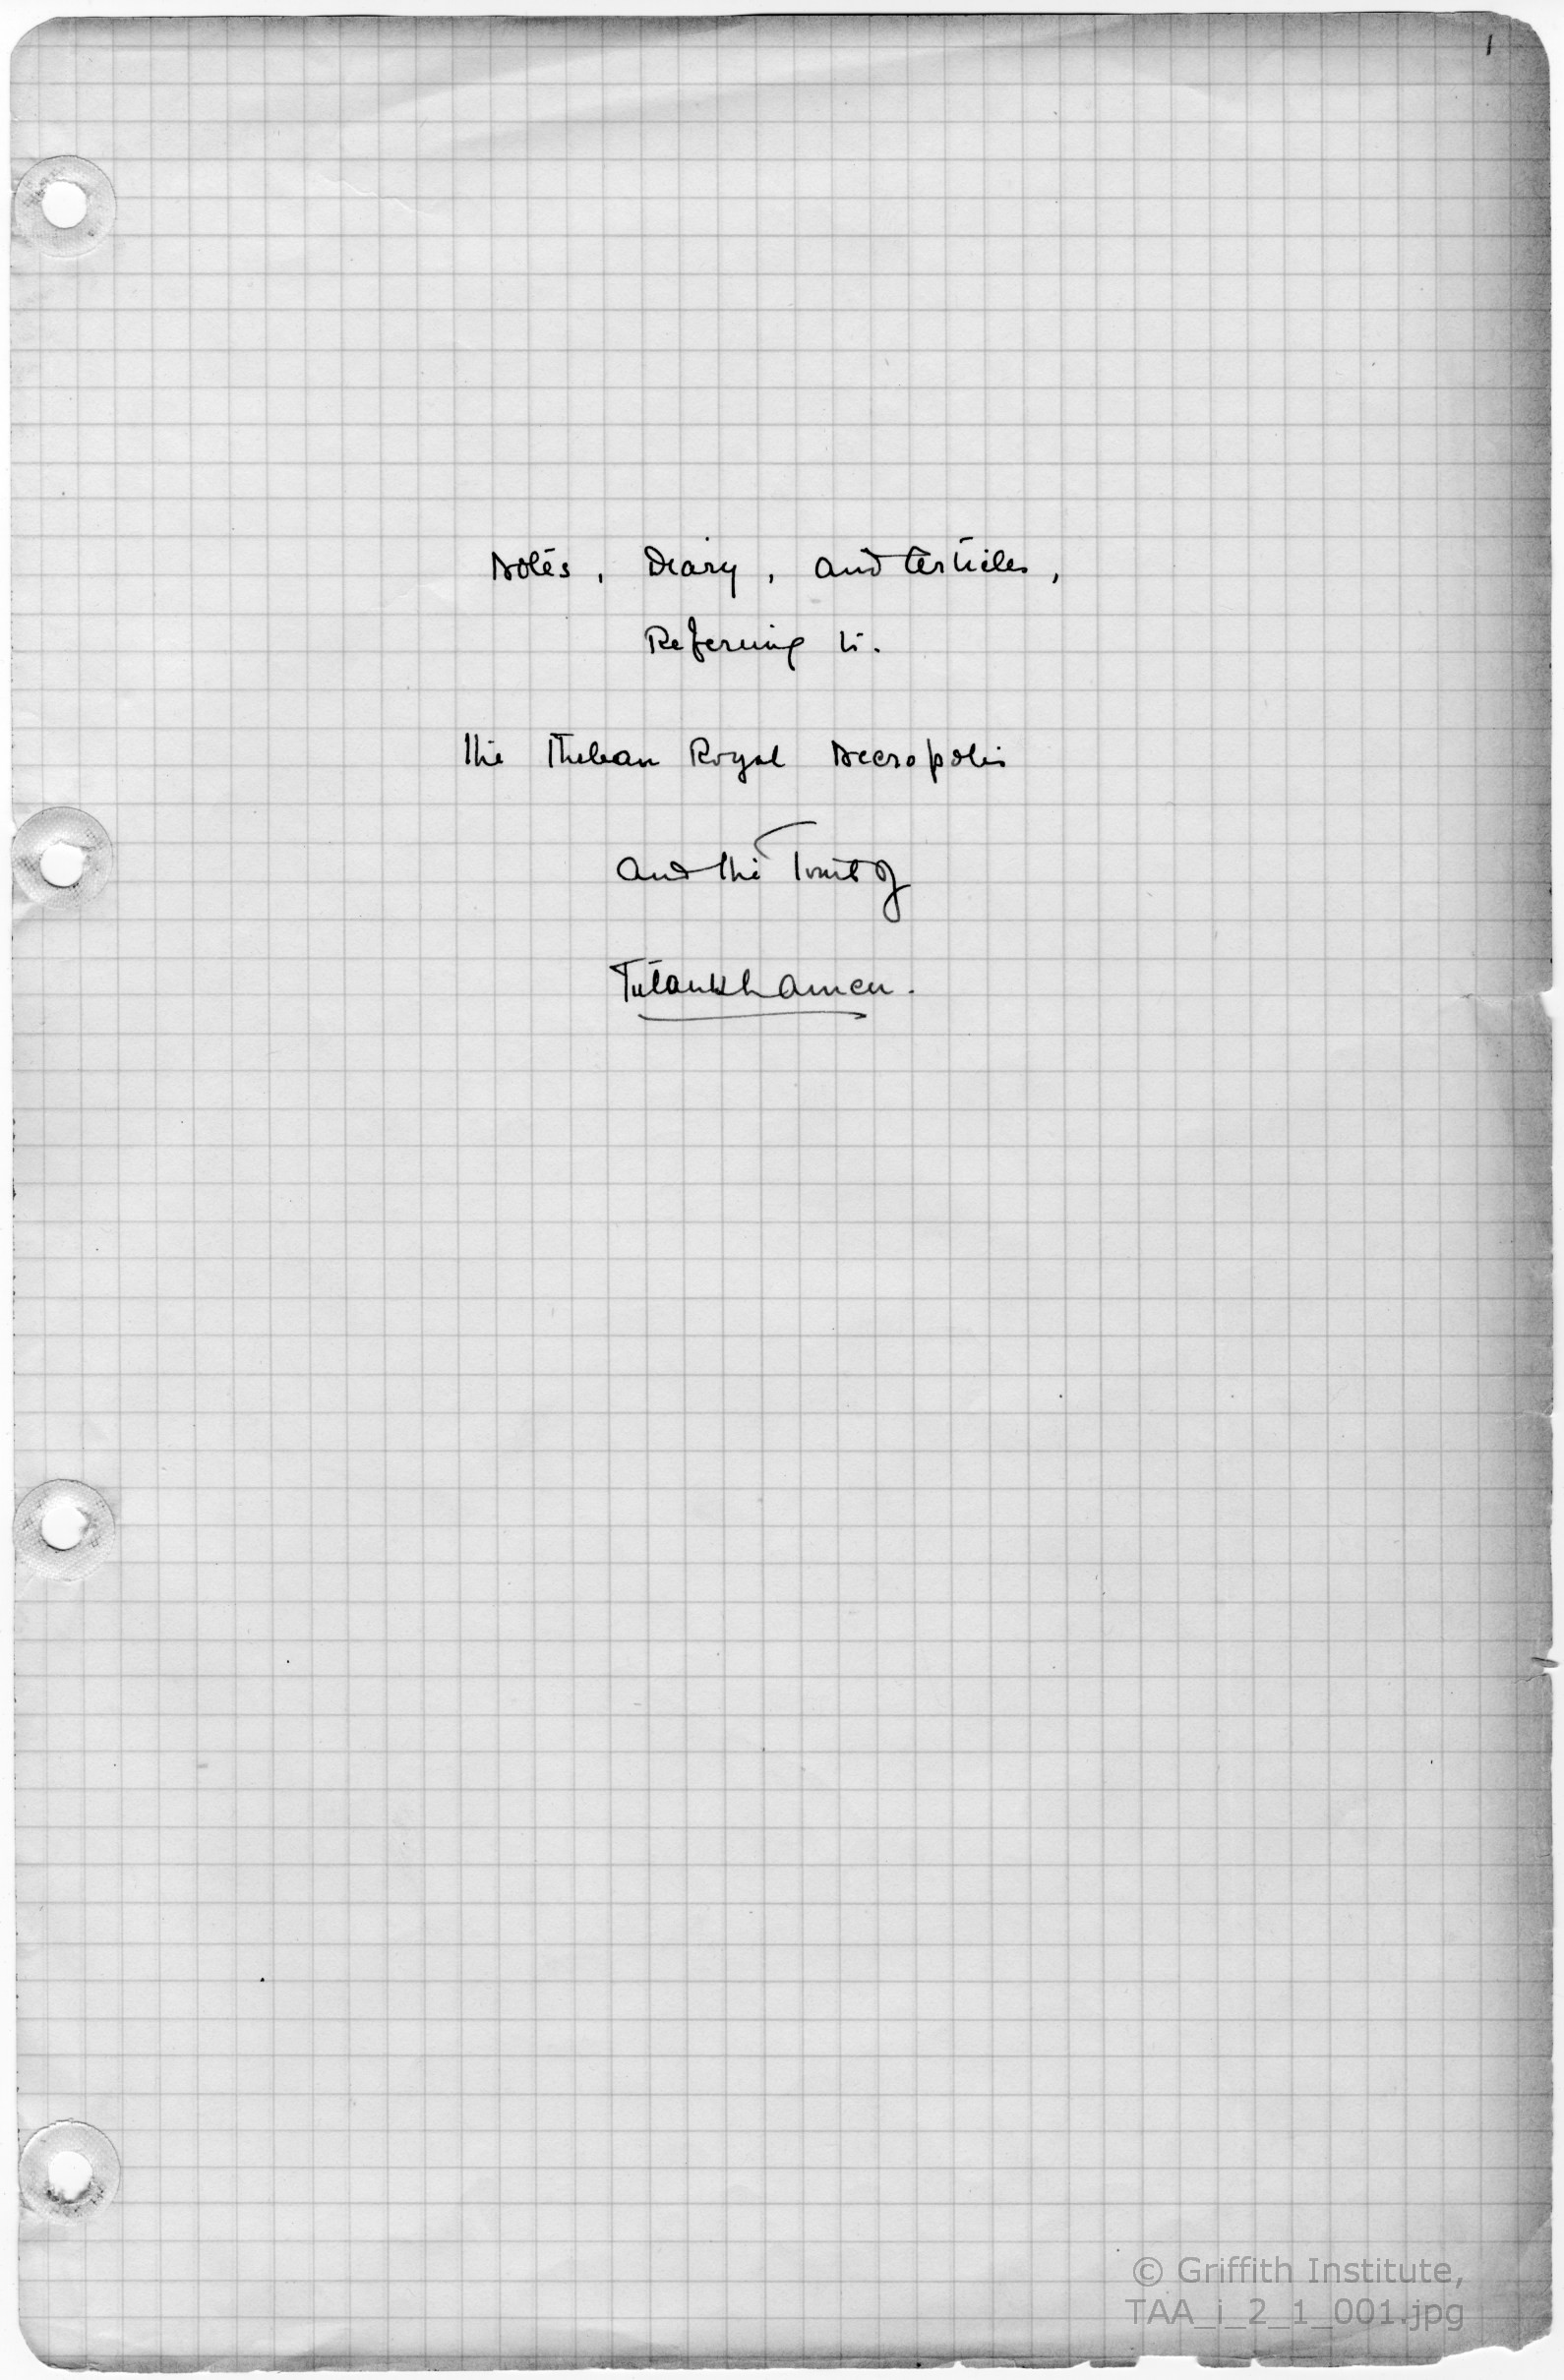 1
Notes, Diary, and Articles,
Referring to.
the Theban Royal Necropolis
and the Tomb of
Tutankhamen.
© Griffith Institute,
TAA_i_2_1_001.jpg